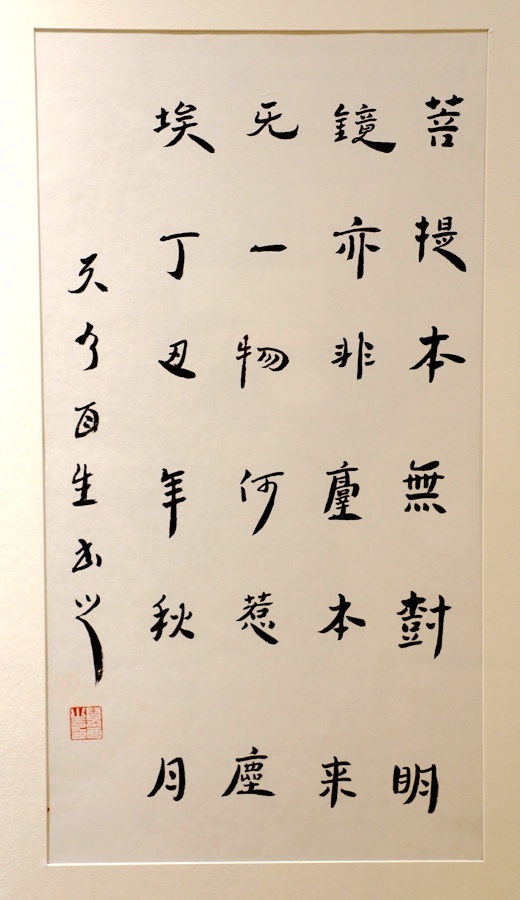 菩提本無樹明
鏡亦非臺本来
无一物何惹塵
埃丁丑年秋月
生书